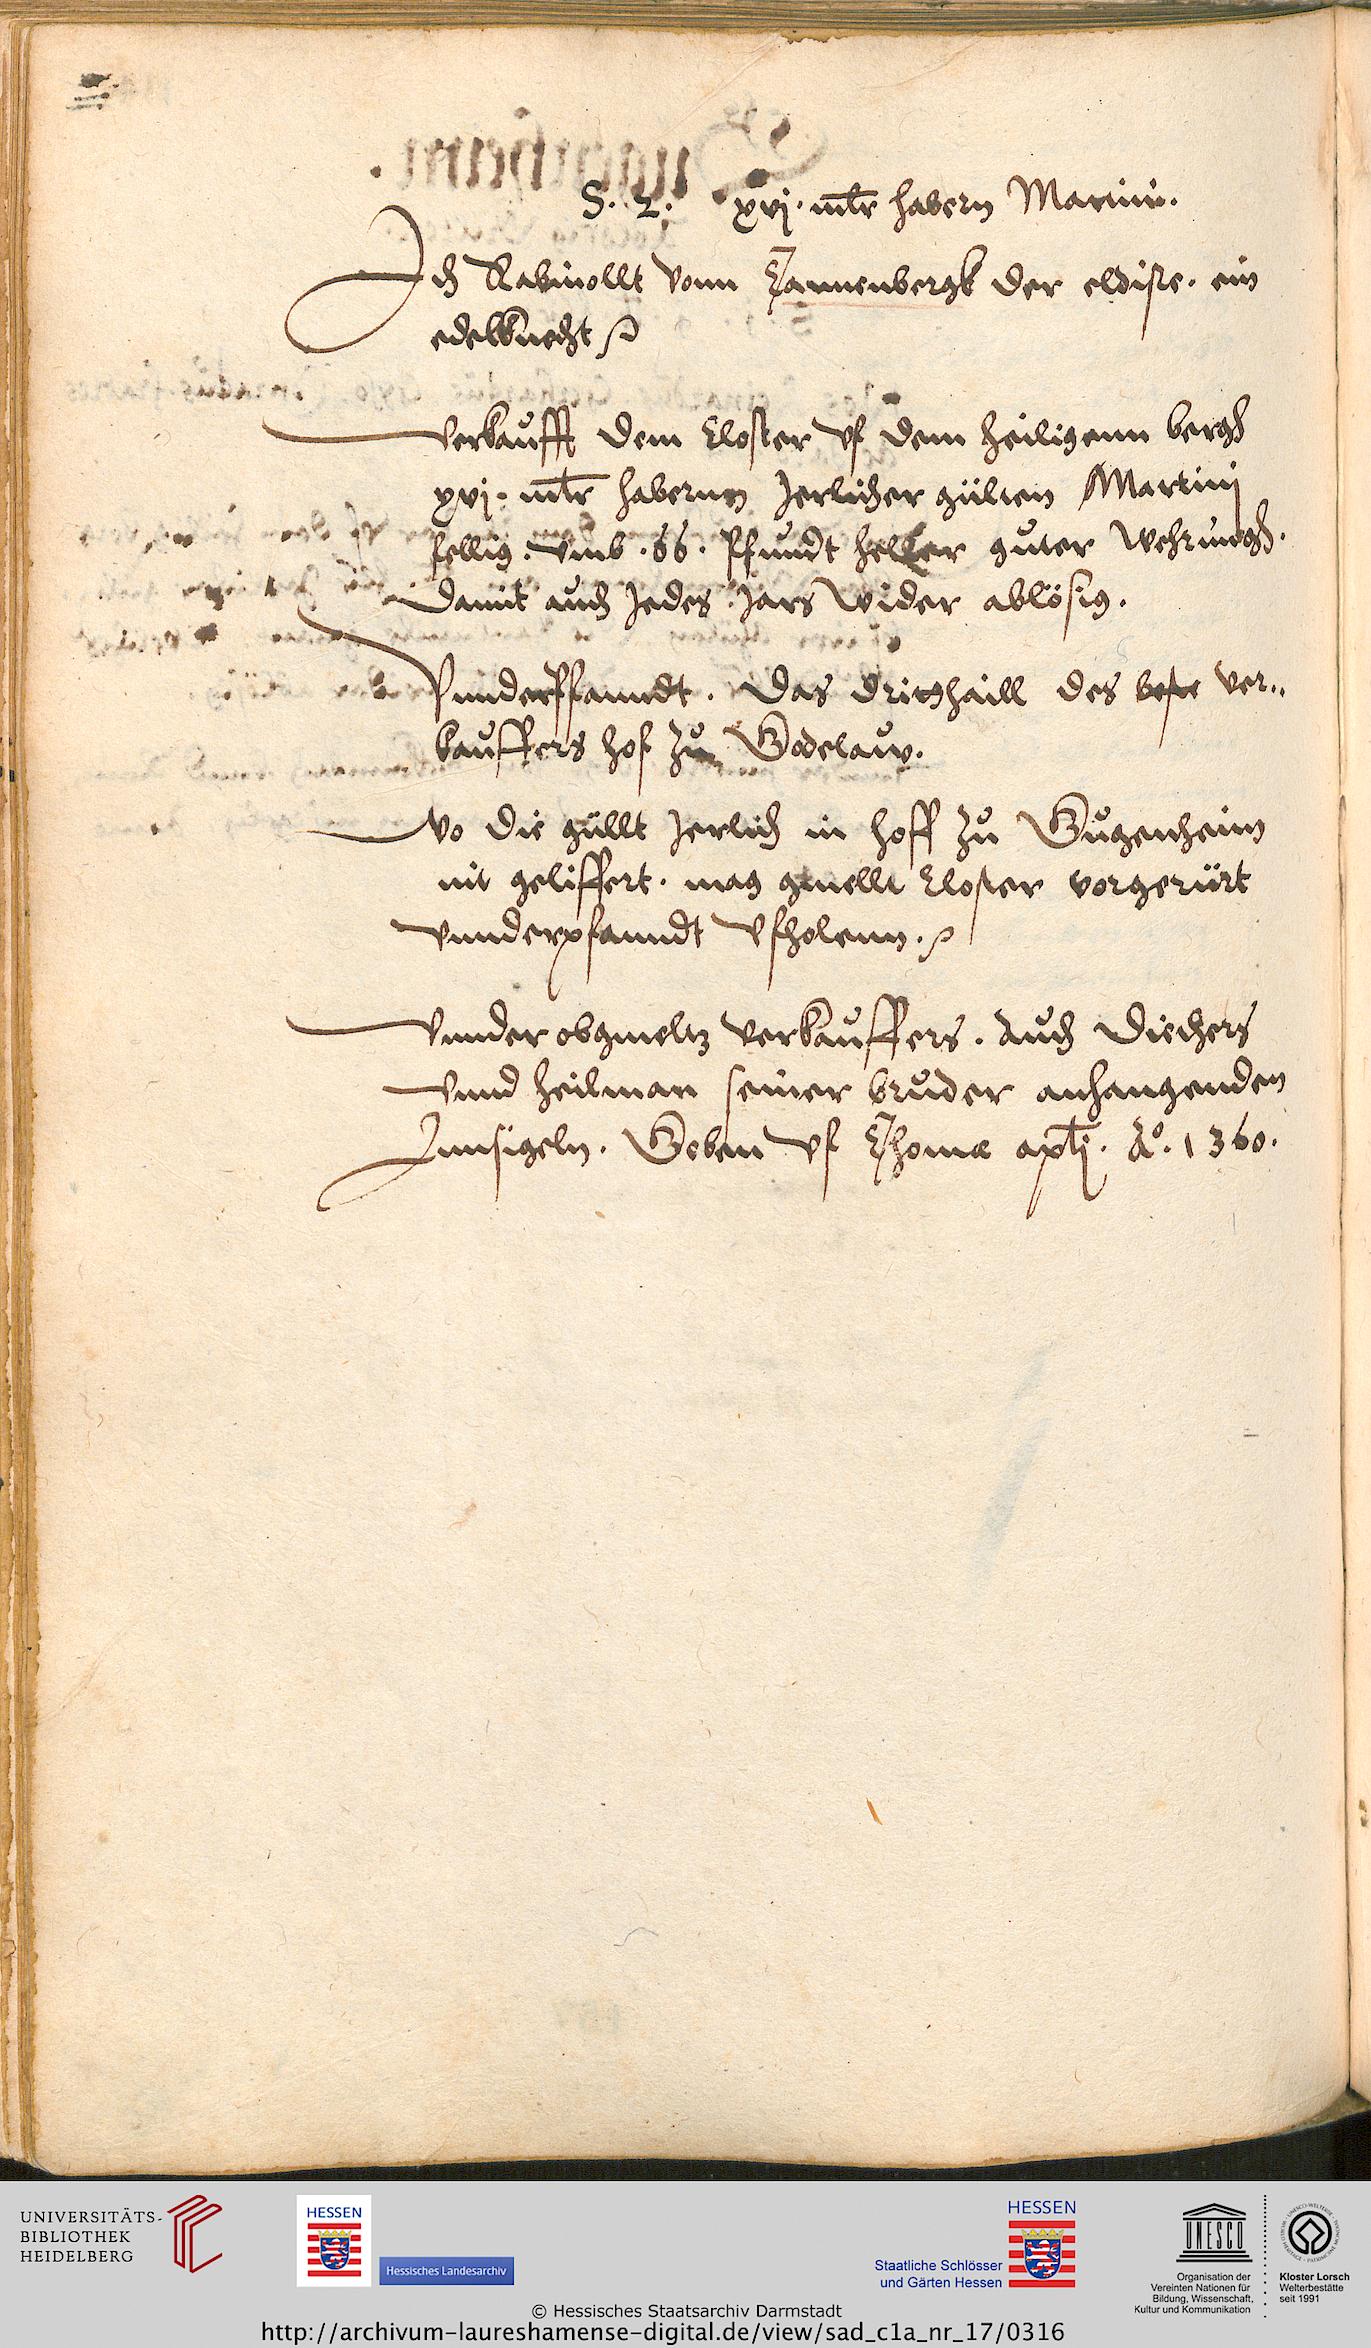 S. L. xvj. mlr habern Martini.
Ich Rabinollt vonn Tannenbergk der eldiste. ein
edelknecht
verkaufft dem Closter vf dem heiligenn bergh
xvj. mlr habernn Jerlicher gülten Martinj
fellig. vmb .66. pfundt heller guter Wehrungh.
damit auch Jedes Jars wider ablösig.
Vnnderpfanndt. Das dritthaill des ver„
kauffers hof zu Godelauw.
Wo die güllt Jerlich in hoff zu Gugenheim
nit geliffert. mag gmellt Closter vorgerürt
vnnderpfanndt vfholenn.
Vnnder obgmeltz verkauffers. Auch Diethers
vnnd heilman seiner bruder anhangenden
Innsigeln. Geben vf Thomæ aplj. Aº. 1360.
UNIVERSITÄTS-
BIBLIOTHEK
HEIDELBERG
HESSEN
Hessisches Landesarchiv
HESSEN
Staatliche Schlösser
und Gärten Hessen
UNESCO
Organisation der
Vereinten Nationen für
Bildung, Wissenschaft,
Kultur und Kommunikation
Kloster Lorsch
Welterbestätte
seit 1991
© Hessisches Staatsarchiv Darmstadt
http://archivum-laureshamense-digital.de/view/sad_c1a_nr_17/0316